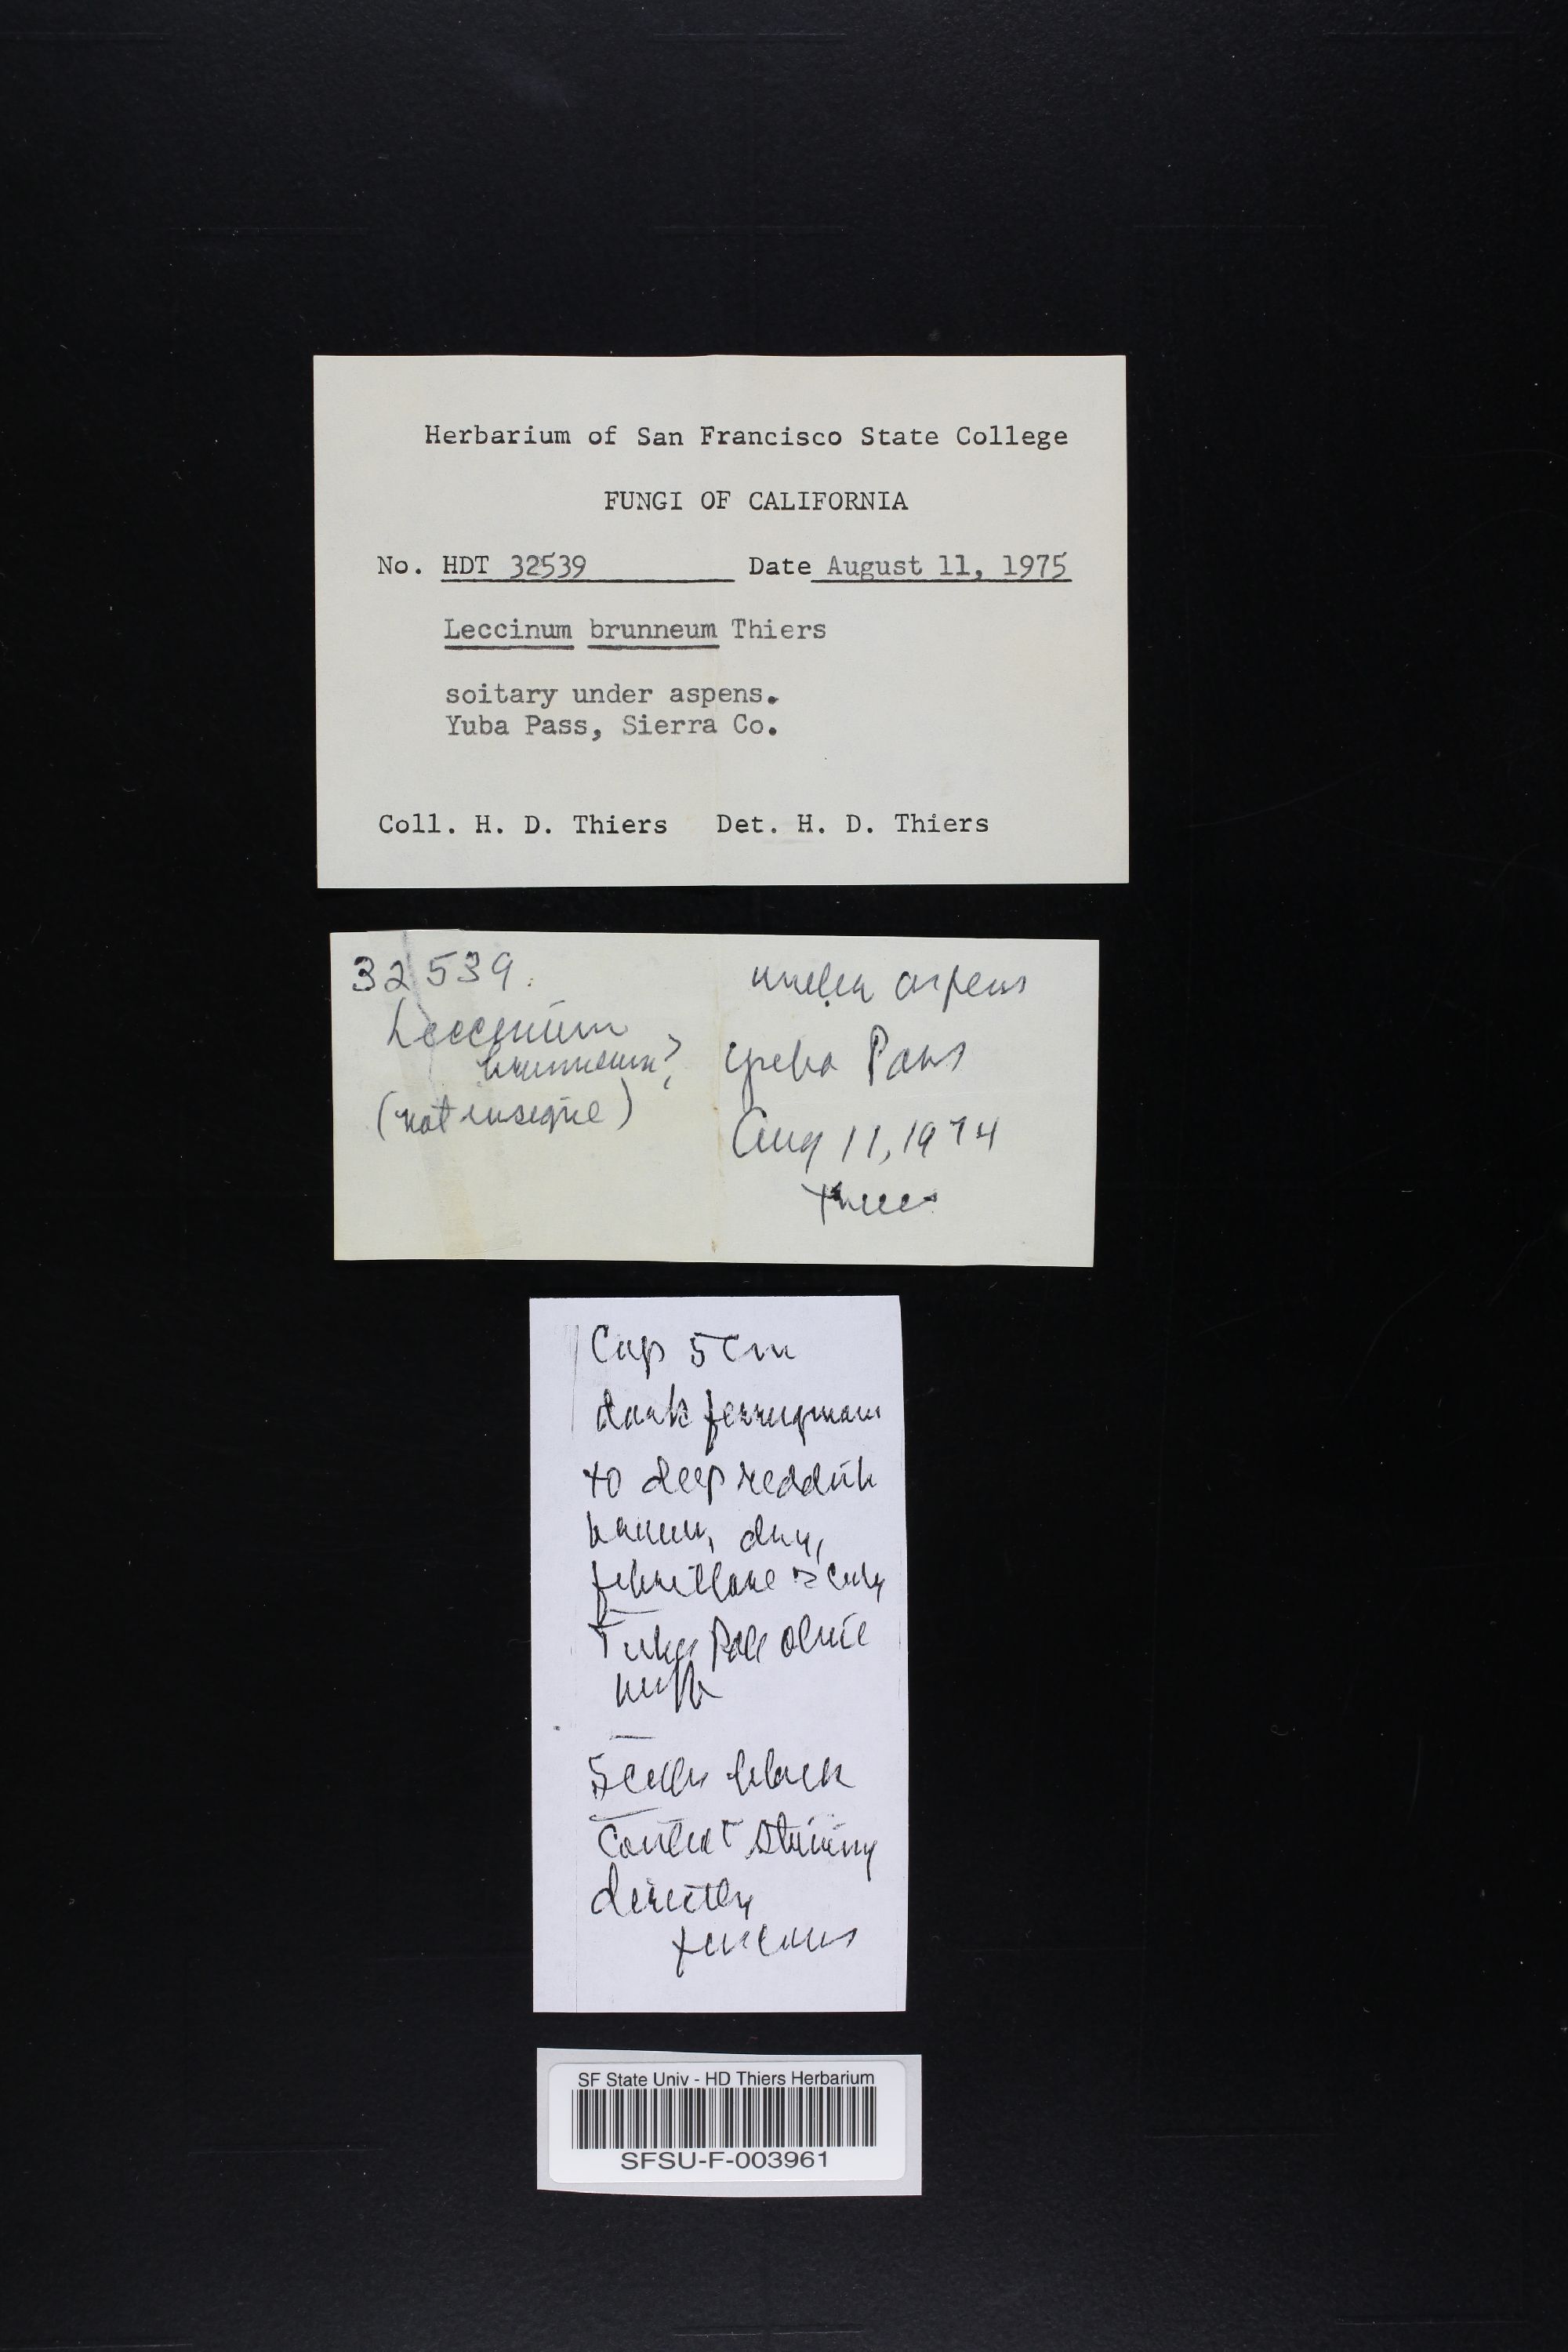 Herbarium of San Francisco State College
FUNGI OF CALIFORNIA
No. HDT 32539 Date August 11, 1975
Leccinum brunneum Thiers
soitary under aspens.
Yuba Pass, Sierra Co.
Coll. H. D. Thiers Det. H. D. Thiers
32539
Leccinum
brunneum?
(not insigne)
under aspens
Yuba Pass
Aug 11, 1974
Thiers
Cap 5 cm
dark ferruginous
to deep reddish
brown, dry,
fibrillose scaly
Tubes pale olive
buff
Scales black
Context staining
directly
fuscous
SF State Univ - HD Thiers Herbarium
SFSU-F-003961